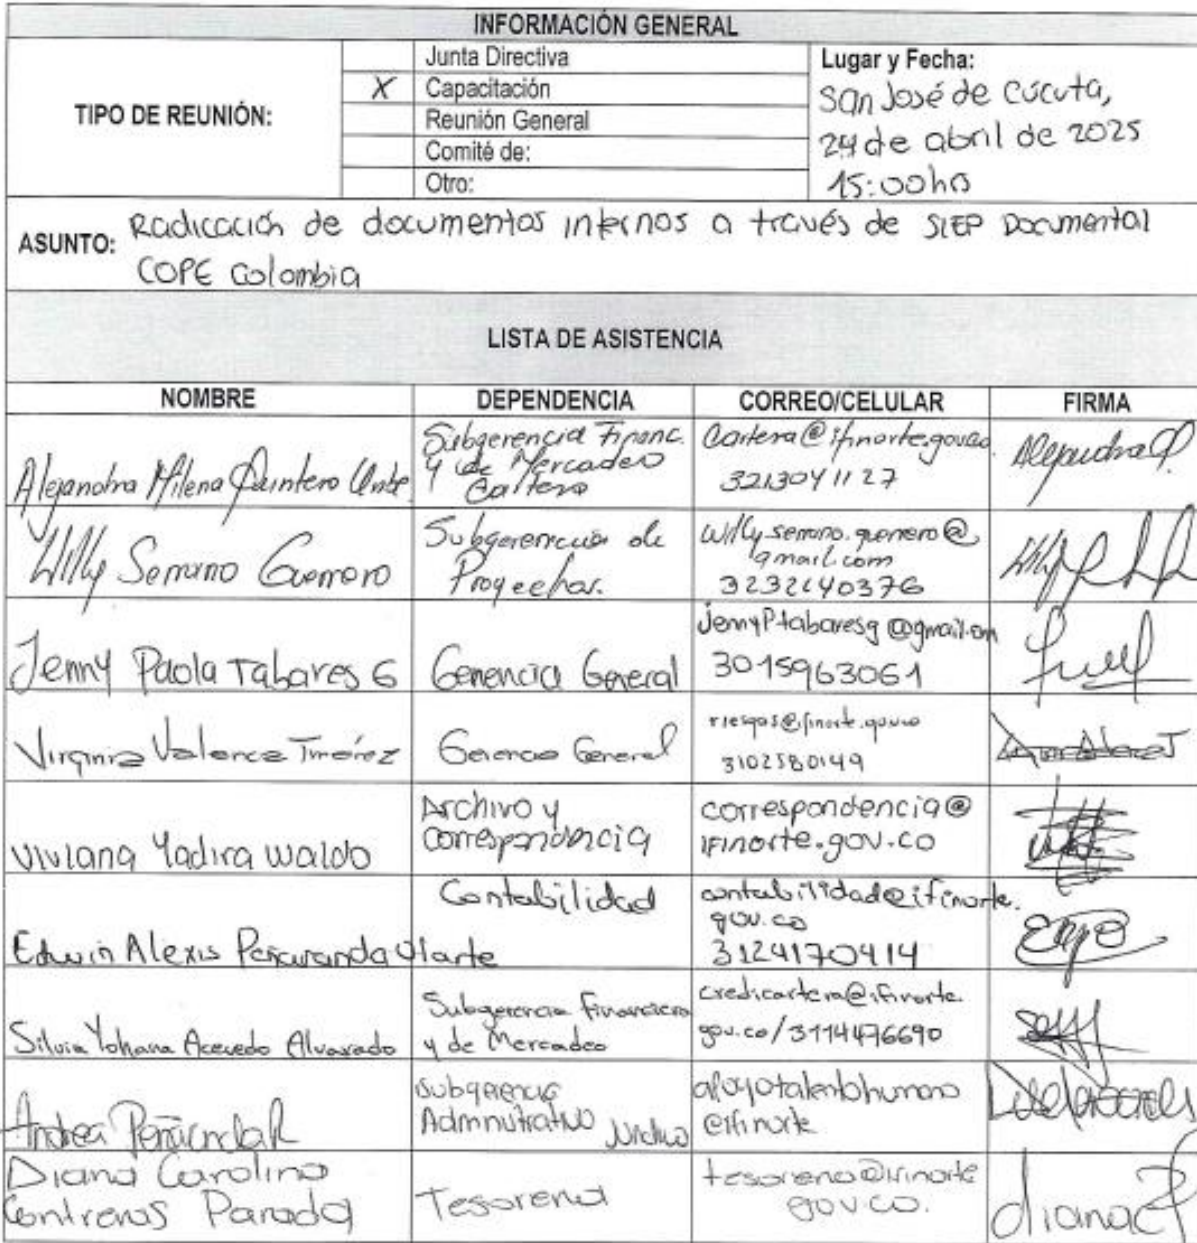 INFORMACIÓN GENERAL
TIPO DE REUNIÓN:
Junta Directiva
X Capacitación
Reunión General
Comité de:
Otro:
Lugar y Fecha:
San José de Cúcuta,
24 de abril de 2025
15:00hrs
ASUNTO: Radicación de documentos internos a través de SIEP Documental
COPE Colombia
LISTA DE ASISTENCIA
NOMBRE DEPENDENCIA CORREO/CELULAR FIRMA
Alejandra Milena Quintero Uribe
Subgerencia Financ.
y de Mercadeo
Cartera
Cartera@ifinorte.gov.co
3213041127
Willy Serrano Guerrero
Subgerencia de
Proyectos.
willy.serrano.guerrero@
gmail.com
3232240376
Jenny Paola Tabares G
Gerencia General
jennyPtabaresg@gmail.com
3015963061
Virginia Valencia Jiménez
Gerencia General
riesgos@ifinorte.gov.co
3102580149
Viviana Yadira Waldo
Archivo y
correspondencia
correspondencia@
ifinorte.gov.co
Edwin Alexis Peñaranda Olarte
Contabilidad
contabilidad@ifinorte.
gov.co
3124170414
Silvia Yohana Acevedo Alvarado
Subgerencia Financiera
y de Mercadeo
credicartera@ifinorte.
gov.co/3114476690
Andrea Peñaranda R
Subgerencia
Administrativo Jurídico
apoyotalentohumano
@ifinorte
Diana Carolina
Contreras Parada
Tesoreria
tesoreria@ifinorte
gov.co.